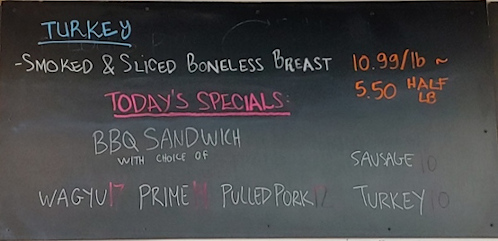 TURKEY
-SMOKED & SLICED BONELESS BREAST 10.99/lb ~
5.50 HALF LB
TODAY'S SPECIALS:
BBQ SANDWICH
WITH CHOICE OF
SAUSAGE 10
WAGYU 17 PRIME PULLED PORK TURKEY 10